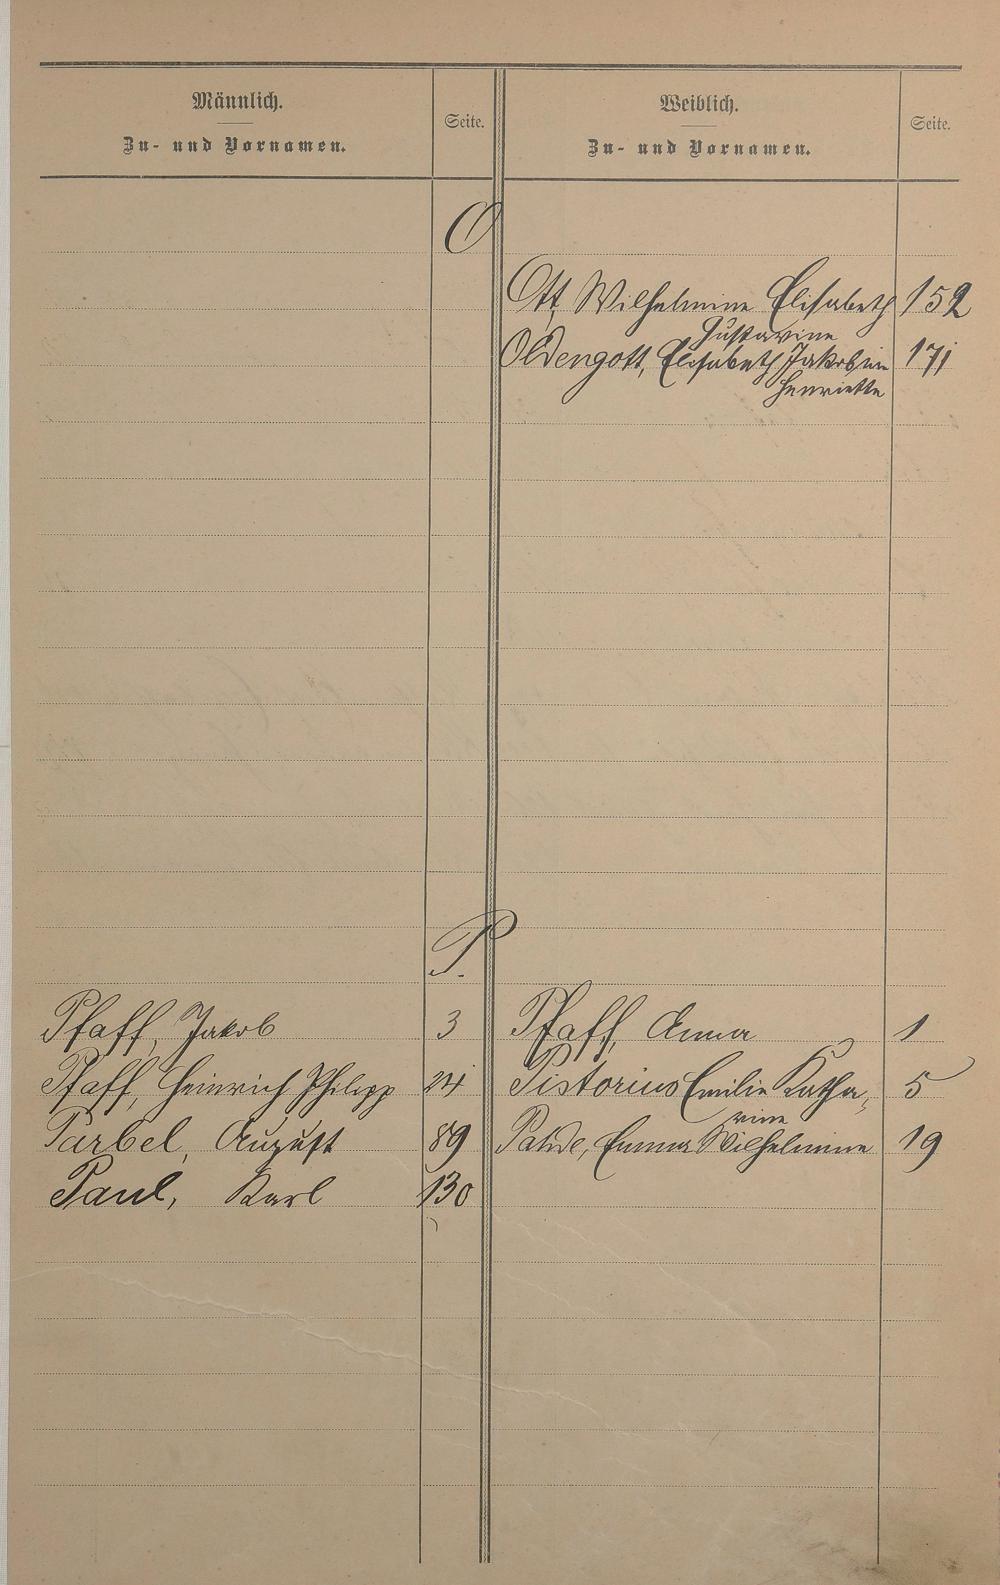 Männlich.
Zu- und Vornamen.
Seite.
Weiblich.
Zu- und Vornamen.
Seite.
O
Ott, Wilhelmine Elisabeth 152
Gustavine
Oldengott, Elisabeth Jakobine 171
Henriette
P.
Pfaff, Jakob 3 Pfaff, Anna 1
Pfaff, Heinrich Philipp 24 Pistorius Emilie Katha, 5
rine
Parbel, August 89 Emma Wilhelmine 19
Paul, Karl 130